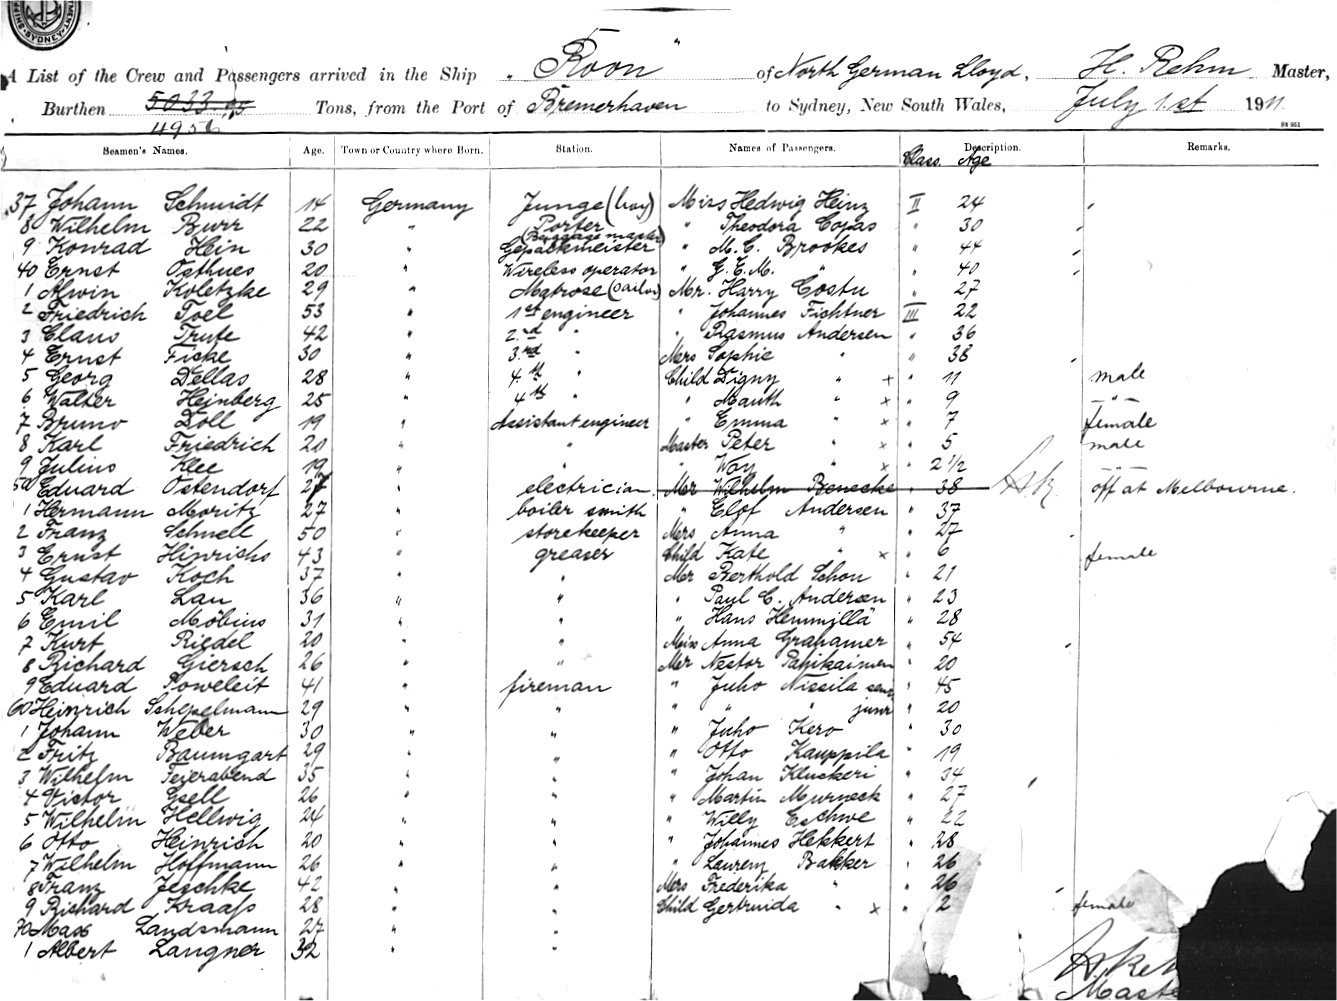 A List of the Crew and Passengers arrived in the Ship "Roon" of North German Lloyd, H. Rehm Master,
Burthen 5033,95 Tons, from the Port of Bremerhaven to Sydney, New South Wales, July 1.st 1911
4956
Seamen's Names. Age. Town or Country where Born. Station. Names of Passengers. Description. Remarks.
Class. Age
37 Johann Schmidt 14 Germany Junge (boy) Miss Hedwig Heinz II 24
8 Wilhelm Burr 22 " Porter " Theodora Copas " 30
(Baggage master)
9 Konrad Hein 30 " Gepäckmeister " M. C. Brookes " 44
40 Ernst Osthues 20 " Wireless operator " G. E. M. " " 40
1 Alwin Koletzke 29 " Matrose (sailor) Mr. Harry Costu " 27
2 Friedrich Toel 53 " 1st engineer " Johannes Fichtner III 22
3 Claus Trute 42 " 2.nd " " Rasmus Andersen " 36
4 Ernst Fiske 30 " 3.rd " Mers Sophie " " 38
5 Georg Dellas 28 " 4.th " Child Digny " x " 11 male
6 Walter Heinberg 25 " 4th " " Mauth " x " 9 "
7 Bruno Doll 19 " Assistant engineer " Emma " x " 7 female
8 Karl Friedrich 20 " " Master Peter " x " 5 male
9 Julius Klee 19 " " " Way " x " 2 1/2 "
50 Eduard Ostendorf 27 " electrician Mer Wilhelm Benecke " 38 off at Melbourne.
1 Hermann Moritz 27 " boiler smith " Elof Andersen " 37
2 Franz Schnell 50 " storekeeper Mers Anna " " 27
3 Ernst Hinrichs 43 " greaser Child Kate " x " 6 female
4 Gustav Koch 37 " " Mer Berthold Schon " 21
5 Karl Lau 36 " " " Paul C. Andersen " 23
6 Emil Möbius 31 " " " Hans Hemmillä " 28
7 Kurt Riedel 20 " " Miss Anna Grahamer " 54
8 Richard Giersch 26 " " Mer Nestor Pahikainen " 20
9 Eduard Poweleit 41 " fireman " Juho Nissila senr " 45
60 Heinrich Schepelmann 29 " " " " " junr " 20
1 Johann Weber 30 " " " Juho Kero " 30
2 Fritz Baumgart 29 " " " Otto Kauppila " 19
3 Wilhelm Feierabend 35 " " " Johan Kluskeri " 34
4 Victor Gsell 26 " " " Martin Murneck " 27
5 Wilhelm Hellwig 24 " " " Willy Eschwe " 22
6 Otto Heinrich 20 " " " Johannes Hekkert " 28
7 Wilhelm Hoffmann 26 " " " Laurenz Bakker " 26
8 Franz Jeschke 42 " " Mers Frederika " " 26
9 Richard Kraass 28 " " Child Gertruida " x " 2 female
70 Max Landsmann 27 " "
1 Albert Langner 32 " "